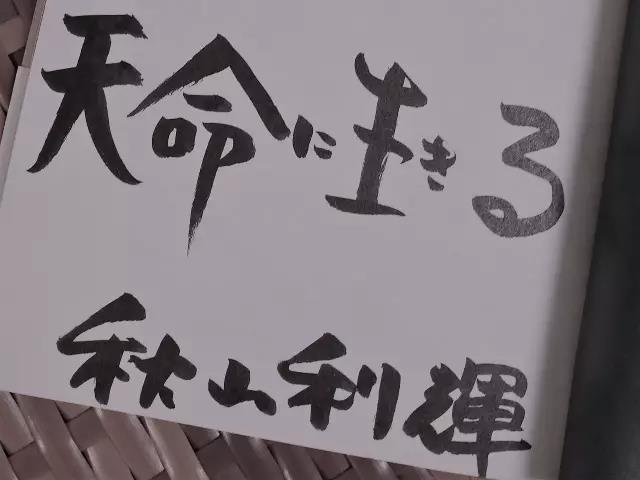 天命に生きる
秋山利輝